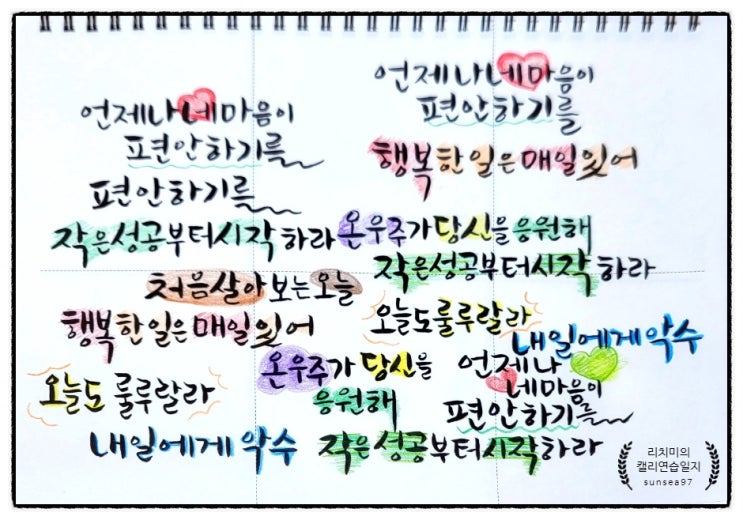 언제나 네 마음이
편안하기를
편안하기를
작은 성공부터 시작 하라
처음 살아 보는 오늘
행복한 일은 매일 있어
오늘도 룰루랄라
온 우주가 당신을
응원해
내일에게 악수
언제나 네 마음이
편안하기를
행복한 일은 매일 있어
온 우주가 당신을 응원해
작은 성공부터 시작 하라
오늘도 룰루랄라
내일에게 악수
언제나
네 마음이
편안하기를
작은 성공부터 시작 하라
리치미의
캘리연습일지
sunsea97